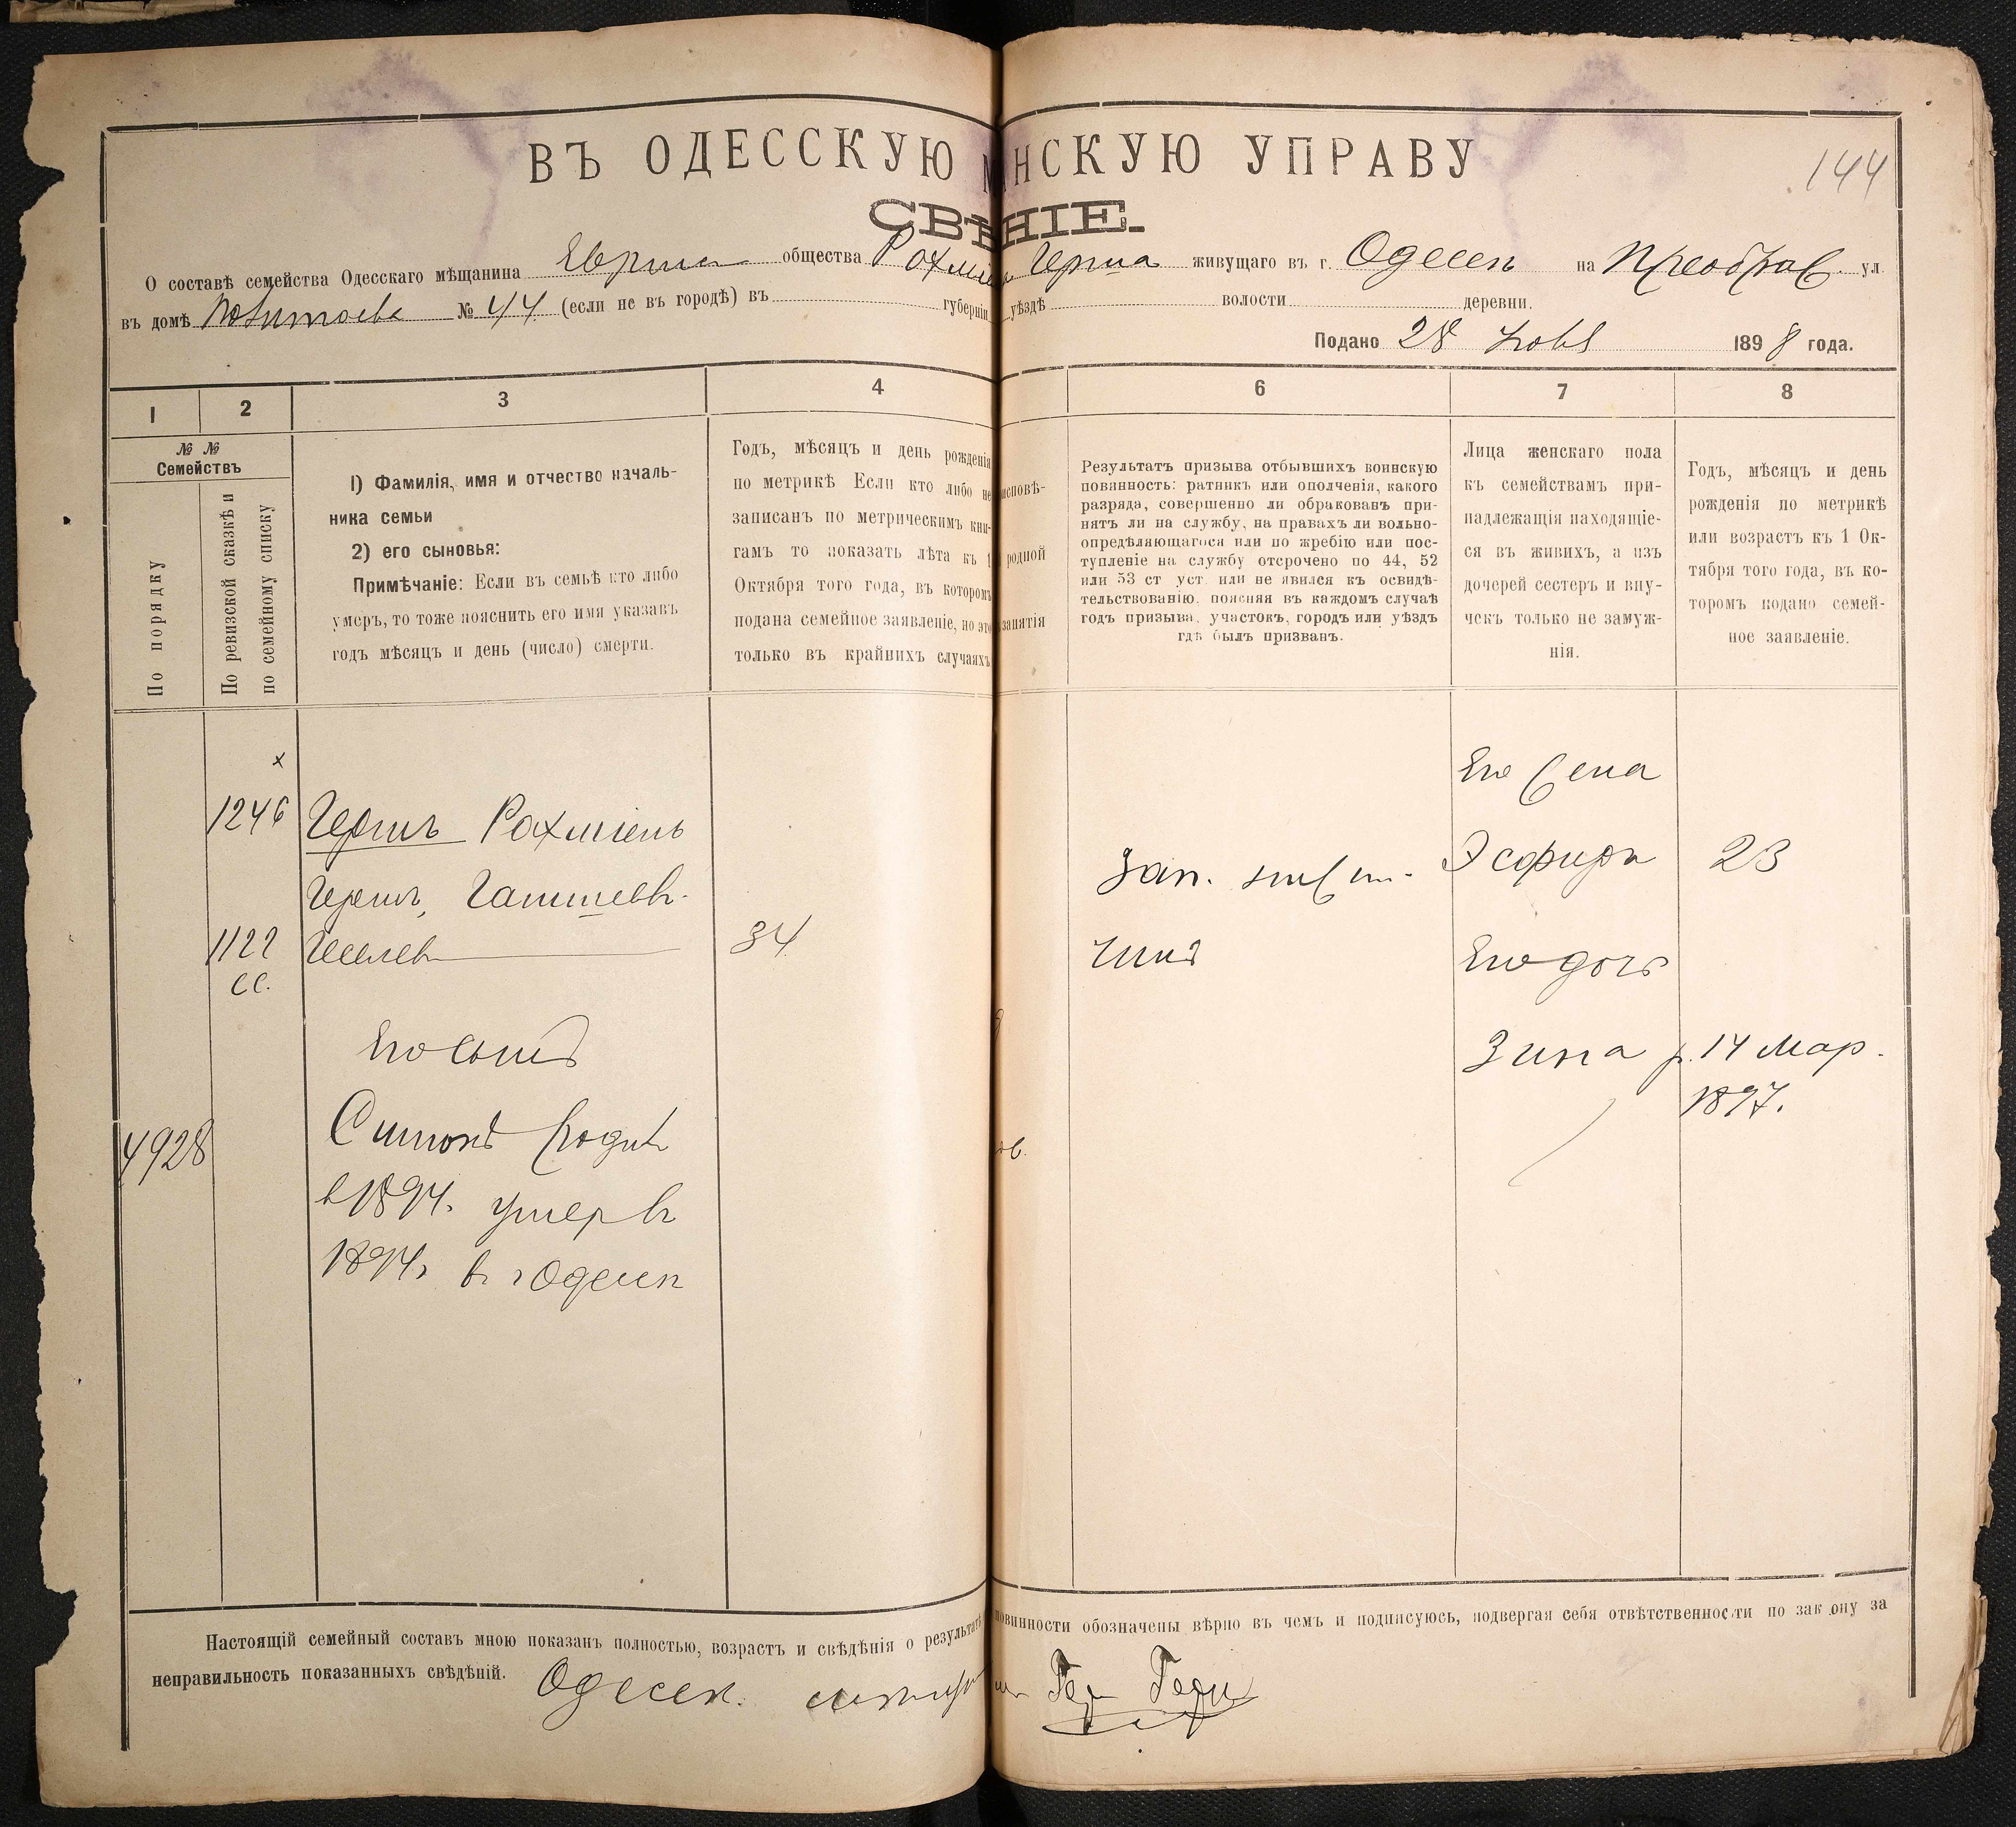 ВЪ ОДЕССКУЮ М НСКУЮ УПРАВУ
144
СВѢ НІЕ.
О составѣ семейства Одесскаго мѣщанина общества Рохміель Герша живущаго въ г. Одессѣ на Преображ. ул.
въ домѣ № 44 (если не въ городѣ) въ губерніи уѣздѣ волости деревни.
Подано 28 Нояб 1898 года.
1 2 3 4 6 7 8
№ №
Семействъ
По порядку
По ревизской сказкѣ и
по семейному списку
1) Фамилія, имя и отчество началь-
ника семьи
2) его сыновья:
Примѣчаніе: Если въ семьѣ кто либо
умеръ, то тоже пояснить его имя указавъ
годъ мѣсяцъ и день (число) смерти.
Годъ, мѣсяцъ и день рожденія
по метрикѣ Если кто либо не
записанъ по метрическимъ кни-
гамъ то показать лѣта къ 1
Октября того года, въ которомъ
подана семейное заявленіе, но это
только въ крайнихъ случаяхъ
исповѣ-
родной
занятія
Результатъ призыва отбывшихъ воинскую
повинность: ратникъ или ополченія, какого
разряда, совершенно ли обракованъ при-
нятъ ли на службу, на правахъ ли вольно-
опредѣляющагося или по жребію или пос-
тупленіе на службу отсрочено по 44, 52
или 53 ст уст. или не явился къ освидѣ-
тельствованію. поясняя въ каждомъ случаѣ
годъ призыва, участокъ, городъ или уѣздъ
гдѣ былъ призванъ.
Лица женскаго пола
къ семействамъ при-
надлежащія находящіе-
ся въ живихъ, а изъ
дочерей сестеръ и вну-
чекъ только не замуж-
нія.
Годъ, мѣсяцъ и день
рожденія по метрикѣ
или возрастъ къ 1 Ок-
тября того года, въ ко-
торомъ подано семей-
ное заявленіе.
х
Его жена
1246 Гершъ Рохміель
Зап. Эсфирь 23
1122 34 чинъ Его дочь
СС.
Его сынъ
Зина р. 14 Мар.
1897.
4928 Симонъ родил
в 1894. умер в
1894г в г Одессѣ
Настоящій семейный составъ мною показанъ полностью, возрастъ и свѣдѣнія о результатѣ повинности обозначены вѣрно въ чемъ и подписуюсь, подвергая себя отвѣтственности по закону за
неправильность показанныхъ свѣдѣній. Одесск.